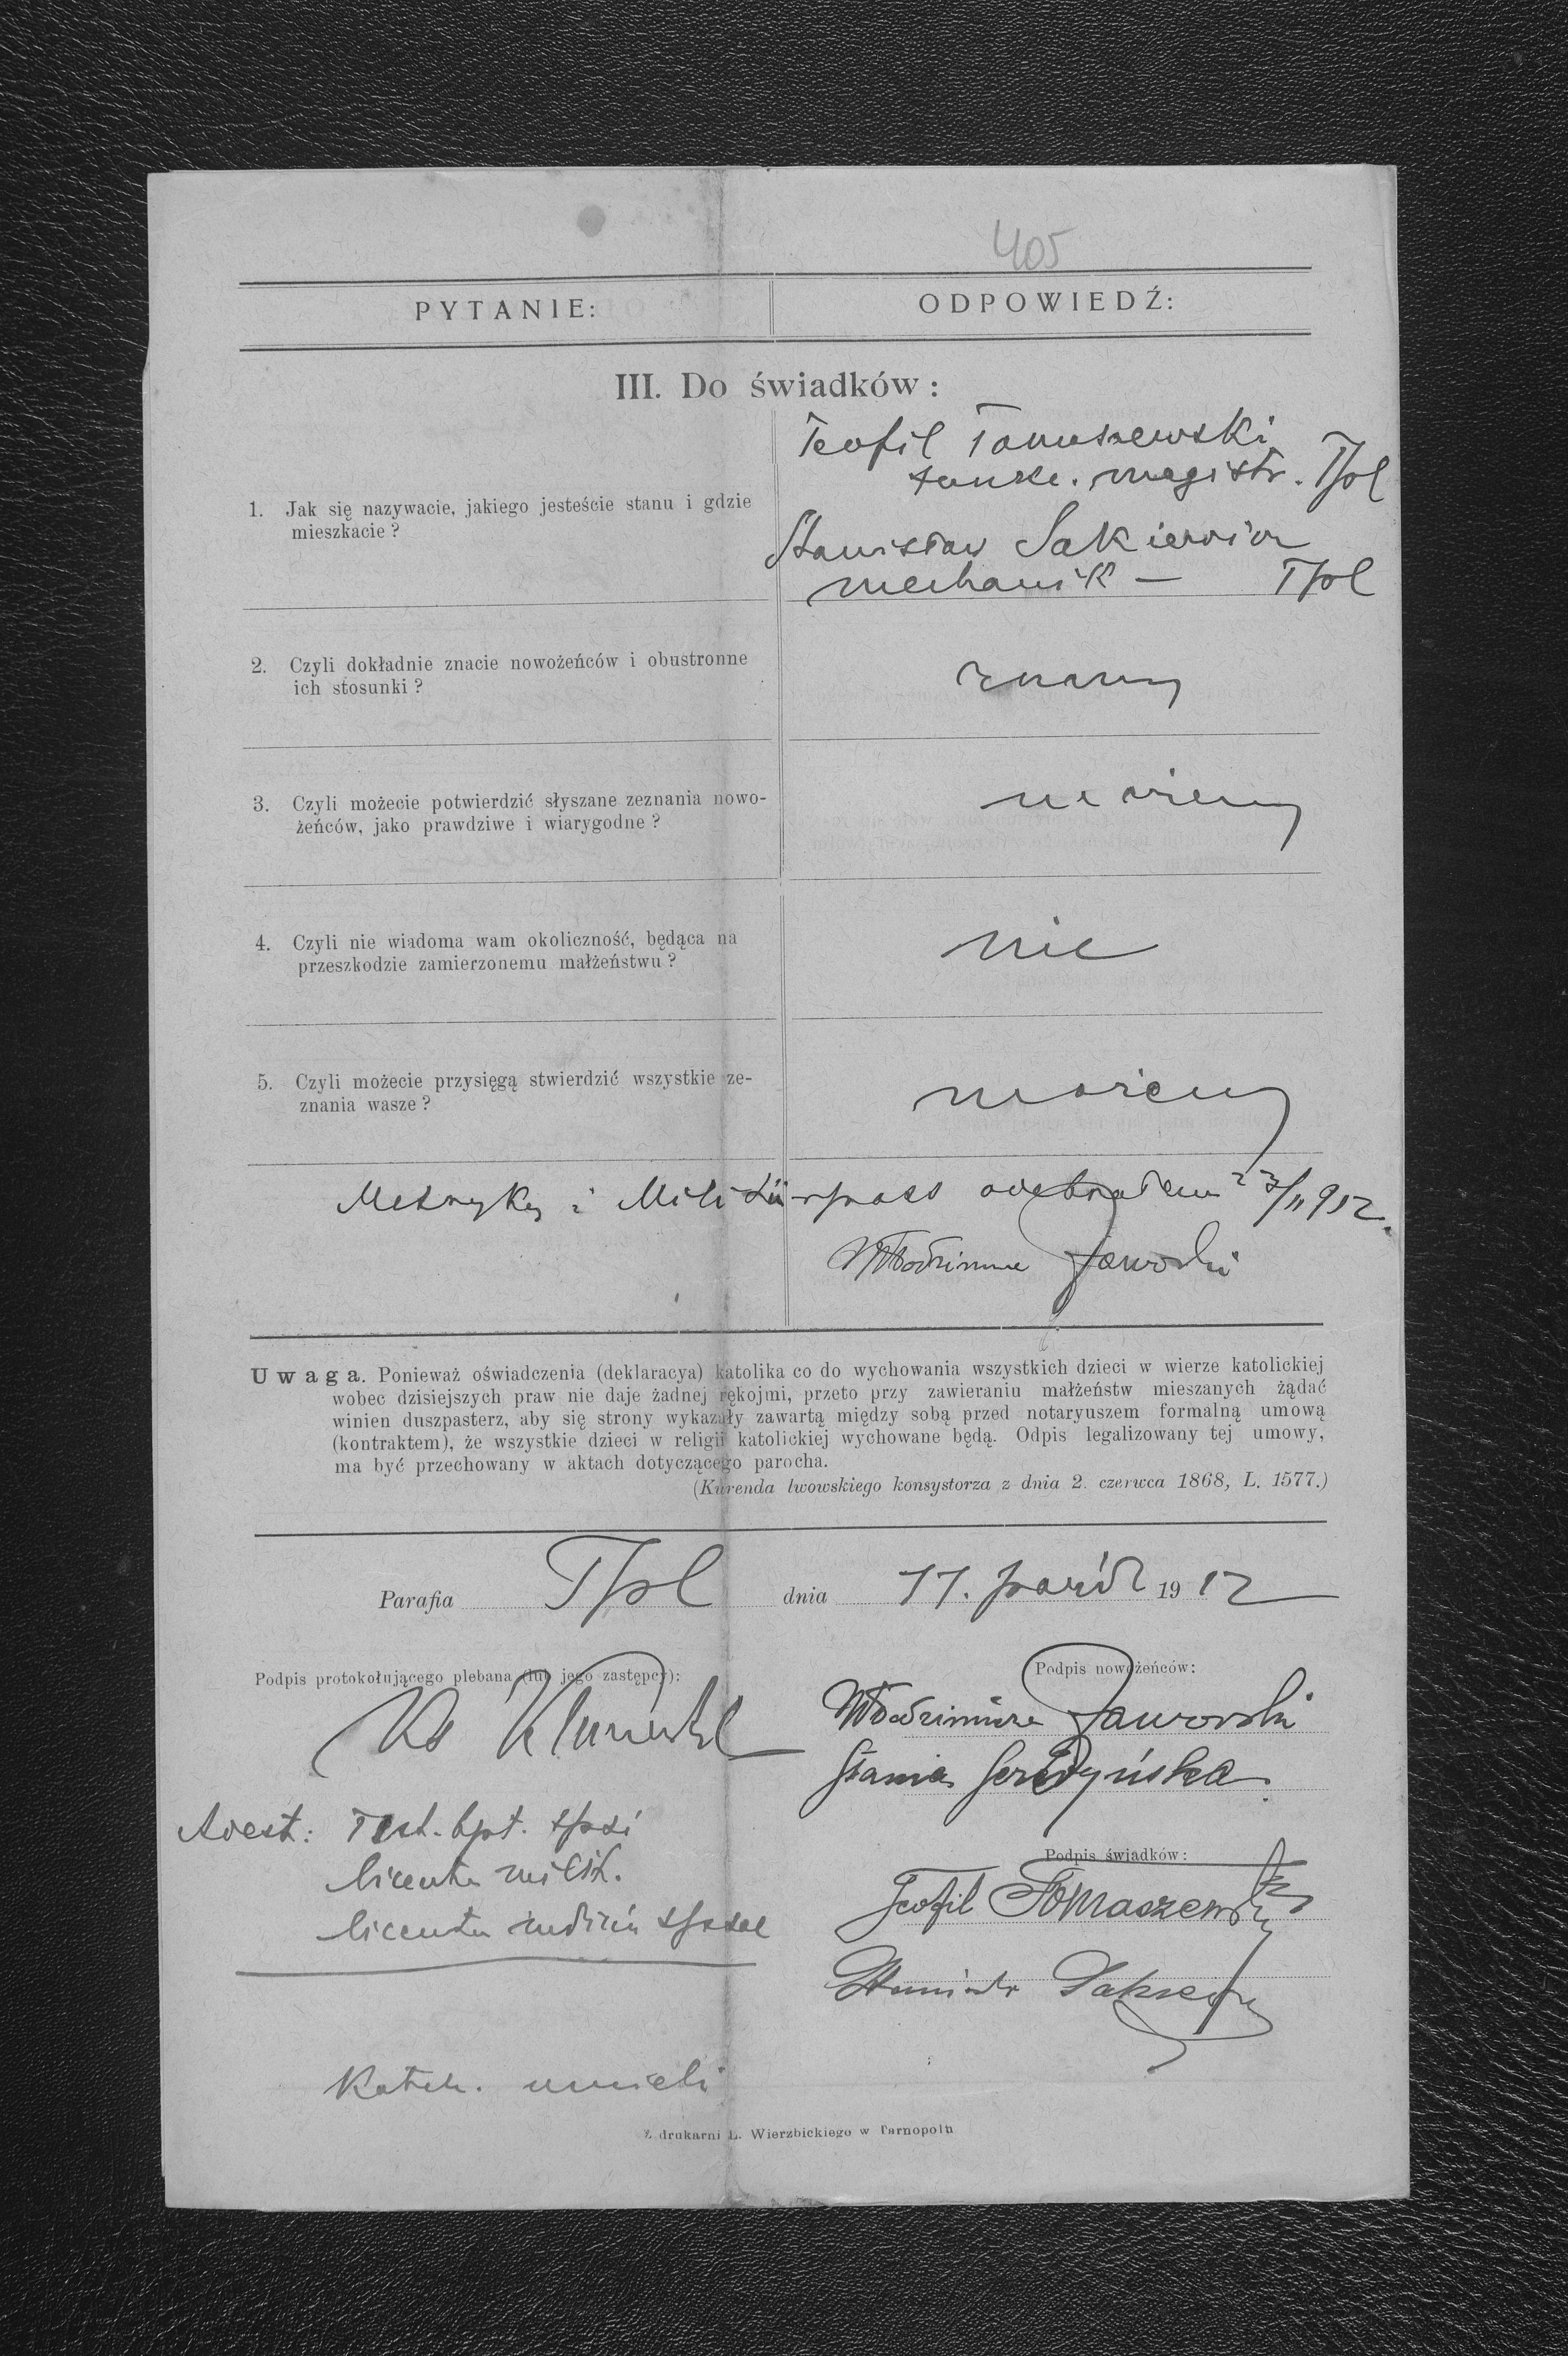 405
PYTANIE:
ODPOWIEDŹ:
III. Do świadków:
1. Jak się nazywacie, jakiego jesteście stanu i gdzie
mieszkacie?
Teofil Tomaszewski
funkc. magistr. Tpol
Stanisław Sakiewicz
mechanik — Tpol
2. Czyli dokładnie znacie nowożeńców i obustronne
ich stosunki?
znamy
3. Czyli możecie potwierdzić słyszane zeznania nowo-
żeńców, jako prawdziwe i wiarygodne?
możemy
4. Czyli nie wiadoma wam okoliczność, będąca na
przeszkodzie zamierzonemu małżeństwu?
nie
5. Czyli możecie przysięgą stwierdzić wszystkie ze-
znania wasze?
możemy
Metrykę i Militärpass odebrałem 23/11 912.
Włodzimierz Jaworski
Uwaga. Ponieważ oświadczenia (deklaracya) katolika co do wychowania wszystkich dzieci w wierze katolickiej
wobec dzisiejszych praw nie daje żadnej rękojmi, przeto przy zawieraniu małżeństw mieszanych żądać
winien duszpasterz, aby się strony wykazały zawartą między sobą przed notaryuszem formalną umową
(kontraktem), że wszystkie dzieci w religii katolickiej wychowane będą. Odpis legalizowany tej umowy,
ma być przechowany w aktach dotyczącego parocha.
(Kurenda lwowskiego konsystorza z dnia 2. czerwca 1868, L. 1577.)
Parafia Tpol dnia 11. paźdz 1912
Podpis protokołującego plebana (lub jego zastępcy):
Podpis nowożeńców:
Ks
Włodzimierz Jaworski
Podpis świadków:
Teofil Tomaszewski
Adest: Test. bpt. sposi
licentia milit.
licentia sposae
Katech. umieli
Z drukarni L. Wierzbickiego w Tarnopolu